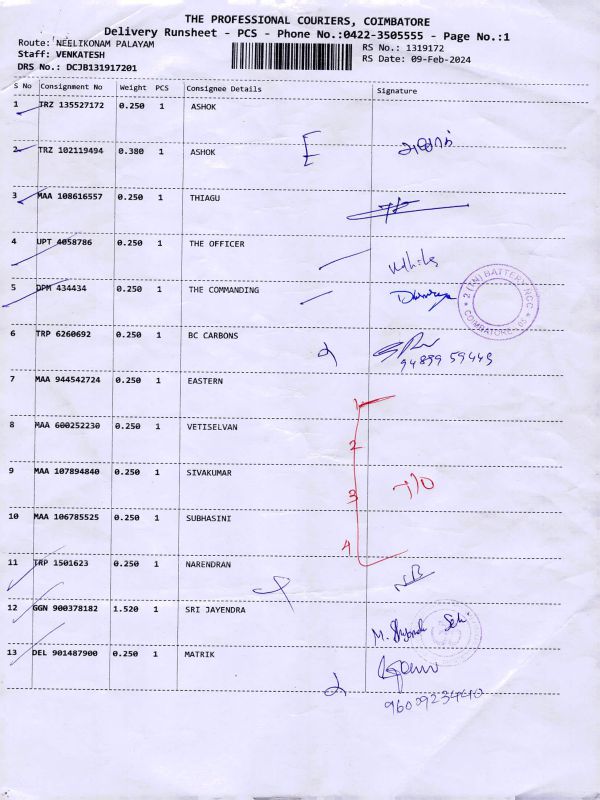 THE PROFESSIONAL COURIERS, COIMBATORE
Delivery Runsheet - PCS - Phone No.:0422-3505555 - Page No.:1
Route: NEELIKONAM PALAYAM
RS No.: 1319172
Staff: VENKATESH
RS Date: 09-Feb-2024
DRS No.: DCJB131917201
S No Consignment No Weight PCS Consignee Details Signature
1 TRZ 135527172 0.250 1 ASHOK
2 TRZ 102119494 0.380 1 ASHOK
3 MAA 108616557 0.250 1 THIAGU
4 UPT 4058786 0.250 1 THE OFFICER
5 DPM 434434 0.250 1 THE COMMANDING
2 (TN) BATTERY NCC
COIMBATORE
6 TRP 6260692 0.250 1 BC CARBONS
94899 59449
7 MAA 944542724 0.250 1 EASTERN
1
8 MAA 600252230 0.250 1 VETISELVAN
2
9 MAA 107894840 0.250 1 SIVAKUMAR
3 T/O
10 MAA 106785525 0.250 1 SUBHASINI
4
11 TRP 1501623 0.250 1 NARENDRAN
12 GGN 900378182 1.520 1 SRI JAYENDRA
13 DEL 901487900 0.250 1 MATRIK
9600923440